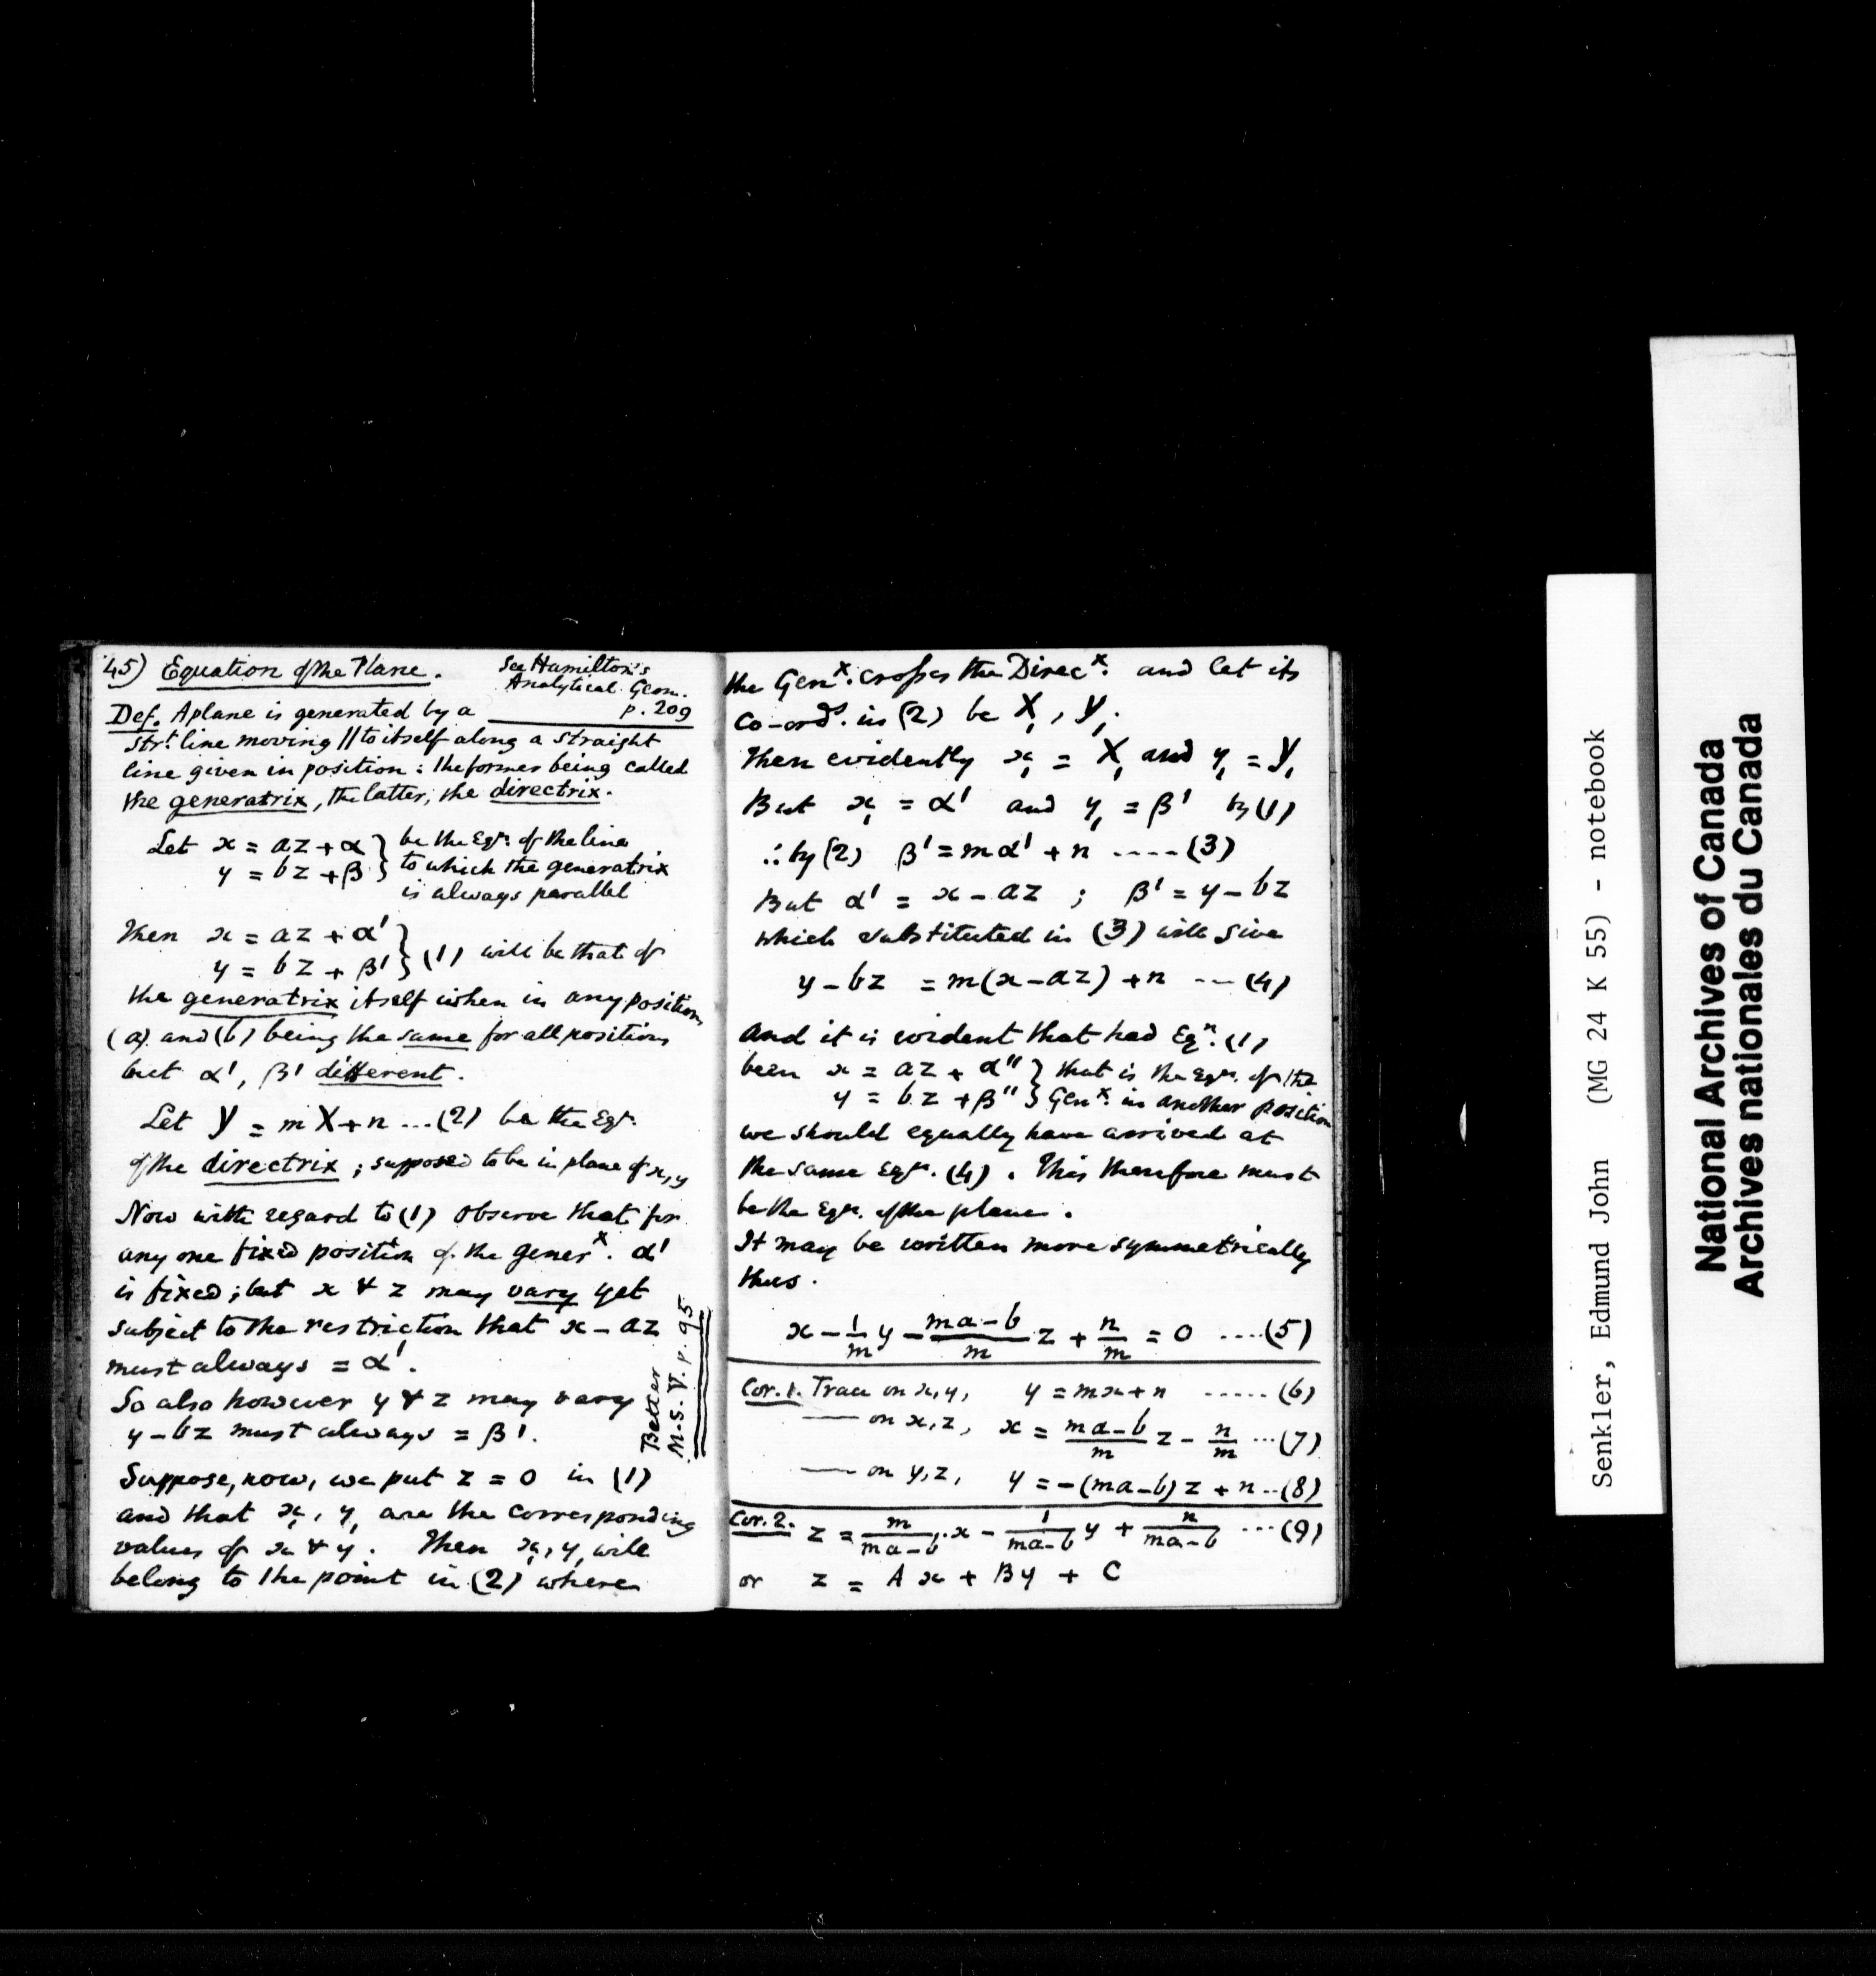 45) Equation of the Plane.
See Hamilton's
Analytical Geom.
p. 209
Def. A plane is generated by a
Str.t line moving // to itself along a straight
line given in position : the former being called
the generatrix, the latter, the directrix.
Let x = az + α } be the Eqn. of the line
y = bz + β } to which the generatrix
is always parallel
Then x = az + α' }
y = bz + β' } (1) will be that of
the generatrix itself when in any position
(a) and (b) being the same for all positions
but α', β' different.
Let Y = m X + n ... (2) be the Eqn.
of the directrix ; supposed to be in plane of x, y
Now with regard to (1) observe that for
any one fixed position of the generx. α'
is fixed ; but x & z may vary yet
subject to the restriction that x – az
must always = α'.
So also however y & z may vary
y – bz must always = β'.
Better
M.S. V. p. 95
Suppose, now, we put z = 0 in (1)
and that x,, y, are the corresponding
values of x & y. Then x,, y, will
belong to the point in (2) where
the Genx. crosses the Direcx. and let its
co-ords. in (2) be X,, Y,.
Then evidently x, = X, and y, = Y,
But x, = α' and y, = β' by (1)
∴ by (2) β' = mα' + n ---- (3)
But α' = x – az ; β' = y – bz
which substituted in (3) will give
y – bz = m(x – az) + n --- (4)
and it is evident that had Eqn. (1)
been x = az + α'' } that is the Eqn. of the
y = bz + β'' } Genx. in another position
we should equally have arrived at
the same Eqn. (4). This therefore must
be the Eqn. of the plane.
It may be written more symmetrically
thus.
x – 1/m y – (ma – b)/m z + n/m = 0 .... (5)
Cor. 1. Trace on x, y, y = mx + n ..... (6)
—— on x, z, x = (ma – b)/m z – n/m ... (7)
—— on y, z, y = – (ma – b) z + n .. (8)
Cor. 2. z = m/(ma – b) . x – 1/(ma – b) y + n/(ma – b) ... (9)
or z = A x + B y + C
Senkler, Edmund John (MG 24 K 55) - notebook
National Archives of Canada
Archives nationales du Canada